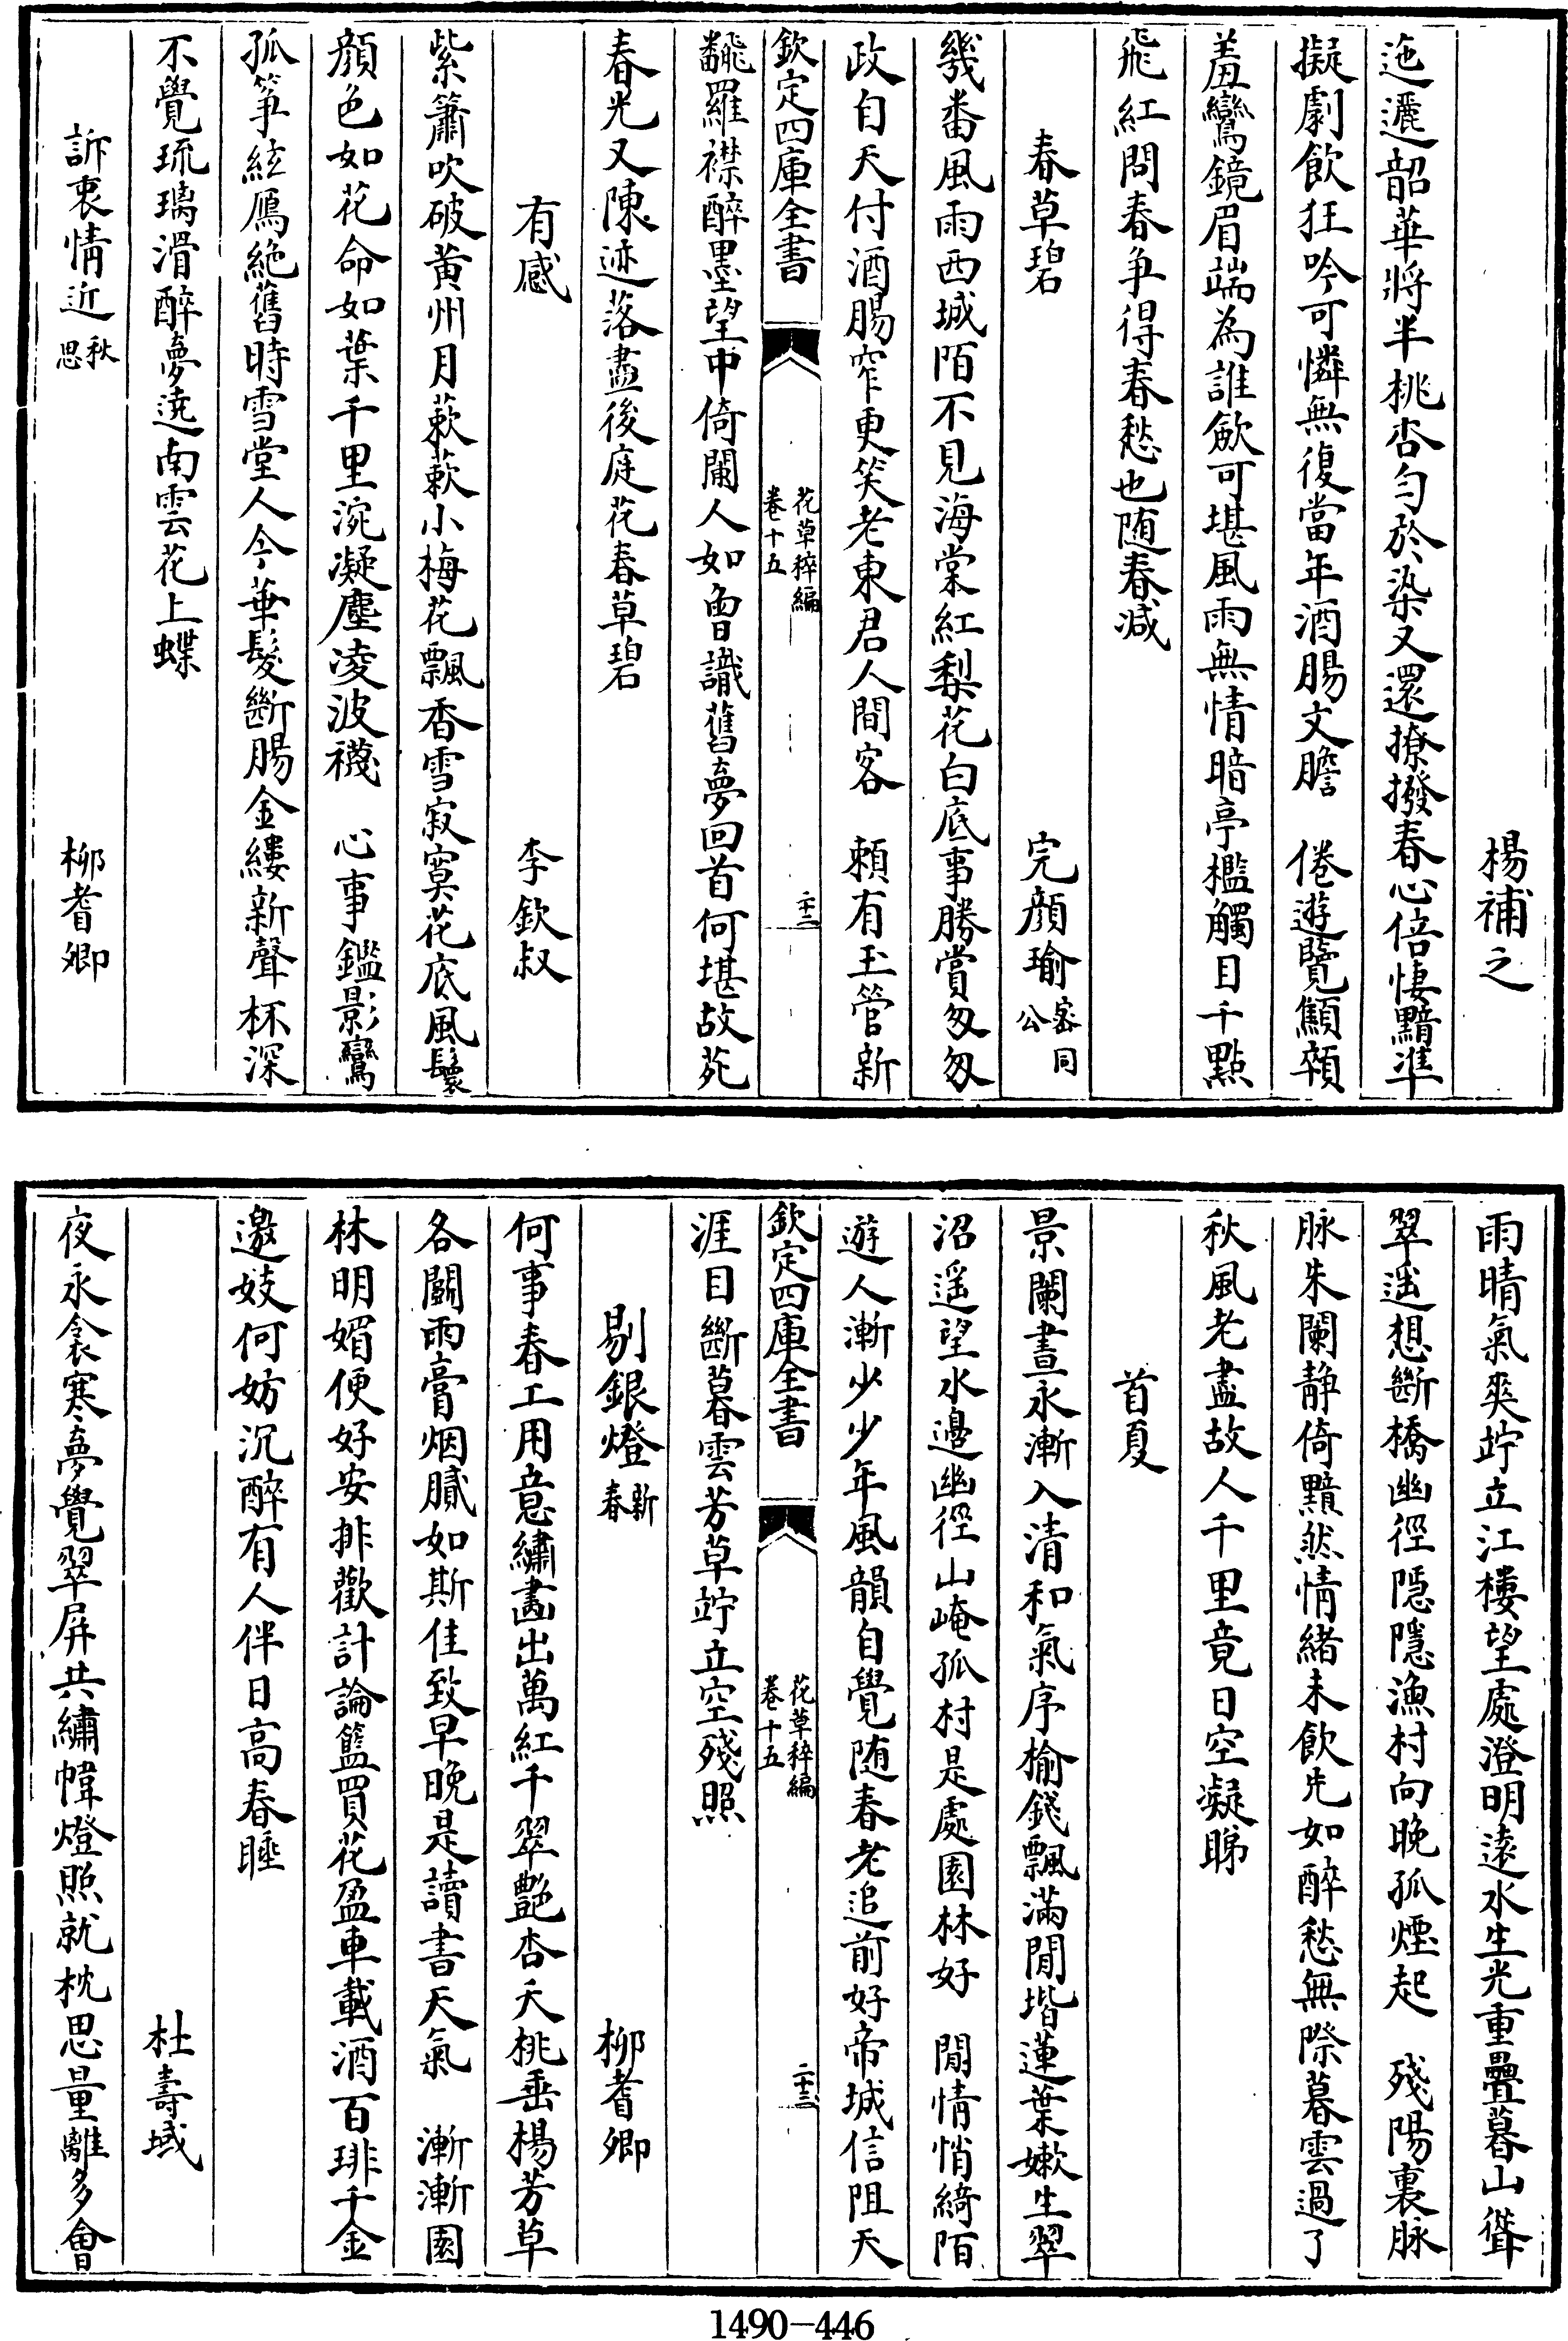 楊補之
迤邐韶華將半桃杏勻於染又還撩撥春心倍悽黯準
擬劇飲狂吟可憐無復當年酒腸文膽　倦遊覽顦顇
羞鸞鏡眉端為誰歛可堪風雨無情暗亭檻觸目千點
飛紅問春争得春愁也随春減
春草碧　完顔瑜密國公
幾番風雨西城陌不見海棠紅梨花白底事勝賞匆匆
政自天付酒腸窄更笑老東君人間客　頼有玉管新
欽定四庫全書　花草稡編卷十五　二十二
飜羅襟醉墨望中倚闌人如曾識舊夢回首何堪故苑
春光又陳迹落盡後庭花春草碧
有感　李欽叔
紫簫吹破黃州月蔌蔌小梅花飄香雪寂寞花底風鬟
顔色如花命如葉千里涴凝塵凌波襪　心事鑑影鸞
孤箏絃鴈絶舊時雪堂人今華髮斷腸金縷新聲杯深
不覺琉璃滑醉夢遶南雲花上蝶
訴衷情近秋思　柳耆卿
雨晴氣爽竚立江樓望處澄明遠水生光重疊暮山聳
翠遥想斷橋幽徑隱隱漁村向晚孤煙起　殘陽裏脉
脉朱闌静倚黯然情緒未飲先如醉愁無際暮雲過了
秋風老盡故人千里竟日空凝睇
首夏
景闌晝永漸入清和氣序榆錢飄滿閒堦蓮葉嫩生翠
沼遥望水邊幽徑山崦孤村是處園林好　閒情悄綺陌
遊人漸少少年風韻自覺随春老追前好帝城信阻天
欽定四庫全書　花草稡編卷十五　二十三
涯目斷暮雲芳草竚立空殘照
剔銀燈新春　柳耆卿
何事春工用意繡畫出萬紅千翠艷杏夭桃垂楊芳草
各鬬雨膏烟膩如斯佳致早晚是讀書天氣　漸漸園
林明媚便好安排歡計論籃買花盈車載酒百琲千金
邀妓何妨沉醉有人伴日高春睡
杜壽域
夜永衾寒夢覺翠屏共繡幃燈照就枕思量離多會
1490—446